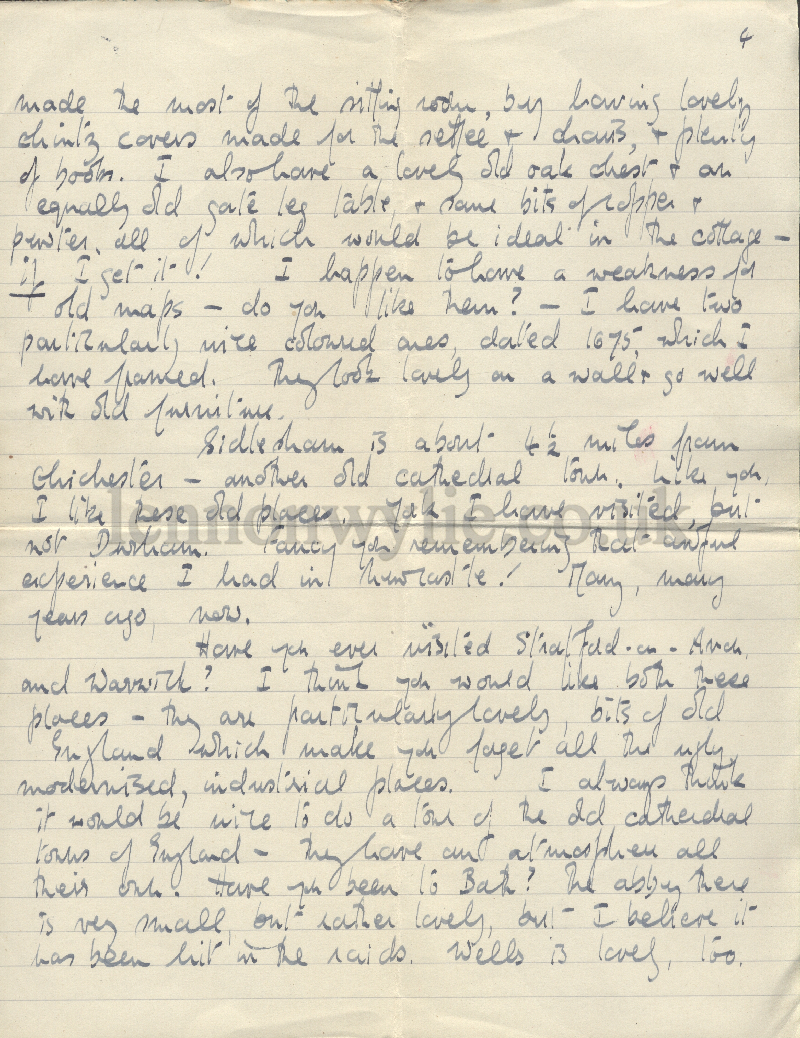 4
made the most of the sitting room, by having lovely
chintz covers made for the settee & chairs, & plenty
of books. I also have a lovely old oak chest & an
equally old gate leg table, & some bits of copper &
pewter, all of which would be ideal in the cottage -
if I get it! I happen to have a weakness for
old maps - do you like them? - I have two
particularly nice coloured ones, dated 1675, which I
have framed. They look lovely on a wall & go well
with old furniture.
Sidlesham is about 4½ miles from
Chichester - another old cathedral town. Like you,
I like these old places. York I have visited, but
not Durham. Fancy you remembering that awful
experience I had in Newcastle! Many, many
years ago, now.
Have you ever visited Stratford-on-Avon,
and Warwick? I think you would like both these
places - they are particularly lovely, bits of old
England which make you forget all the ugly,
modernised, industrial places. I always think
it would be nice to do a tour of the old cathedral
towns of England - they have an atmosphere all
their own. Have you been to Bath? The abbey there
is very small, but rather lovely, but I believe it
has been hit in the raids. Wells is lovely, too.
lennonwylie.co.uk